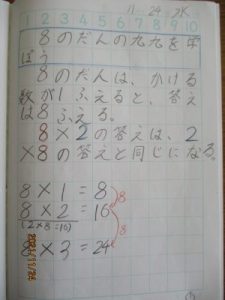 1 2 3 4 5 6 7 8 9 10
11 24 水
8のだんの九九を学
ぼう
8のだんは、かける
数が1ふえると、答え
は8ふえる。
8×2の答えは、2
×8の答えと同じになる。
8×1=8
8
8×2=16
(2×8=16)
8
8×3=24
2021/11/24